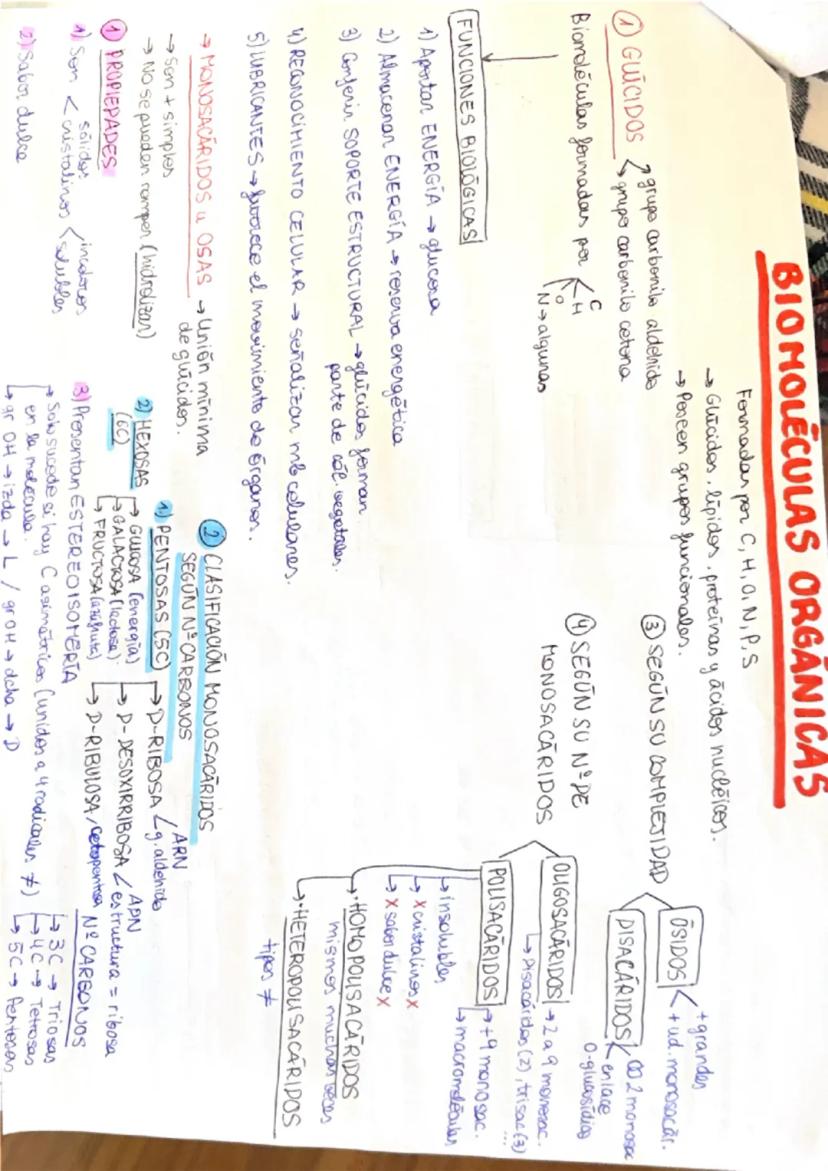 BIOMOLÉCULAS ORGÁNICAS
Formadas por C, H, O, N, P, S
→ Glúcidos, lípidos, proteínas y ácidos nucléicos.
→ Poseen grupos funcionales.
① GLÚCIDOS
↗ grupo carbonilo aldehido
↘ grupo carbonilo cetona
Biomoléculas formadas por
C
H
O
N → algunas
FUNCIONES BIOLÓGICAS
1) Aportan ENERGÍA → glucosa
2) Almacenan ENERGÍA → reserva energética
3) Conferir SOPORTE ESTRUCTURAL → glúcidos forman
parte de cél. vegetales.
4) RECONOCIMIENTO CELULAR → señalizan mb celulares.
5) LUBRICANTES → favorece el movimiento de órganos.
→ MONOSACÁRIDOS u OSAS → Unión mínima
de glúcidos.
→ Son + simples
→ No se pueden romper (hidrolizar)
① PROPIEPADES
1) Son < sólidos
cristalinos < incoloros
solubles
2) Sabor dulce
3) Presentan ESTEREOISOMERÍA
→ Solo sucede si hay C asimétrico (unidos a 4 radicales ≠)
en la molécula.
↳ gr OH → izda → L / gr OH → dcha → D
② CLASIFICACIÓN MONOSACÁRIDOS
SEGÚN Nº CARBONOS
1) PENTOSAS (5C)
→ D-RIBOSA < ARN
g. aldehido
→ D-DESOXIRRIBOSA < ADN
estructura = ribosa
→ D-RIBULOSA, cetopentosa
2) HEXOSAS
(6C)
→ GLUCOSA (energía)
→ GALACTOSA (lactosa).
→ FRUCTOSA (az fruta)
Nº CARBONOS
→ 3C → Triosas
→ 4C → Tetrosas
→ 5C → Pentosas
③ SEGÚN SU COMPLEJIDAD
ÓSIDOS < + grandes
+ ud. monosacár.
DISACÁRIDOS < 2 monosac
enlace
O-glucosídico
④ SEGÚN SU Nº DE
MONOSACÁRIDOS
OLIGOSACÁRIDOS → 2 a 9 monosac.
↳ Disacáridos (2), trisac (3) ...
POLISACÁRIDOS → + 9 monosac.
→ macromoléculas
→ insolubles
→ X cristalinos X
→ X sabor dulce X
→ HOMOPOLISACÁRIDOS
mismos muchas veces
→ HETEROPOLISACÁRIDOS
tipos ≠